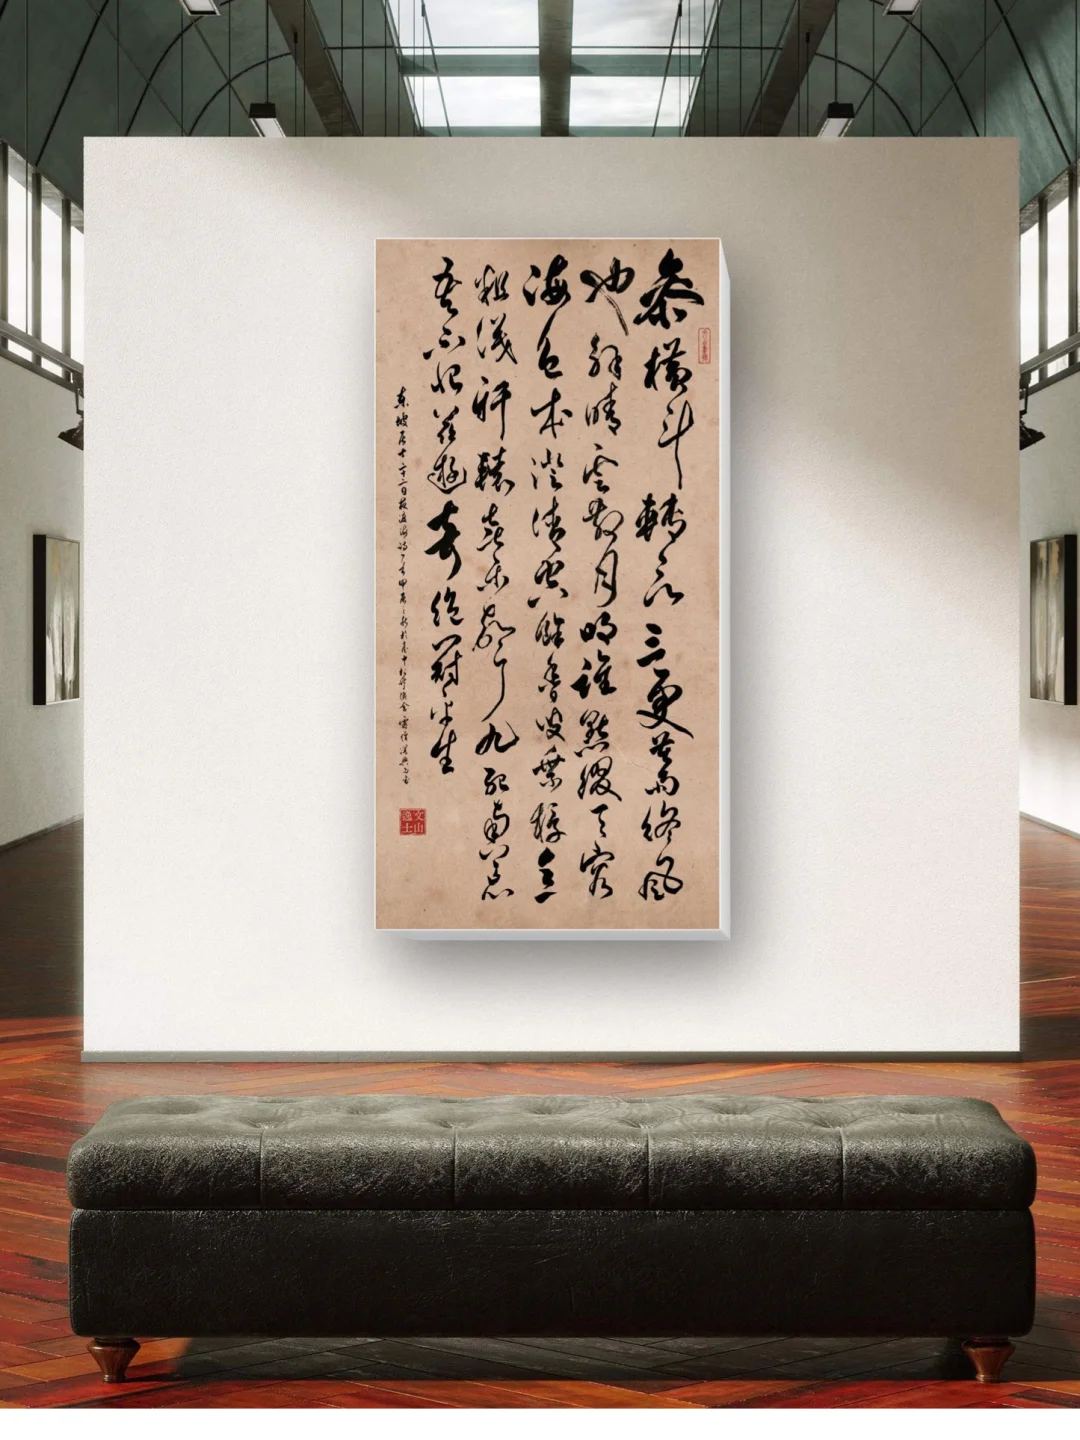 參橫斗轉欲三更苦雨終風
也解晴雲散月明誰點綴天容
海色本澄清空餘魯叟乘桴意
粗識軒轅奏樂聲九死南荒
吾不恨茲遊奇絕冠平生
東坡居士六月二十日夜渡海詩一首甲辰之秋於
文山逸士